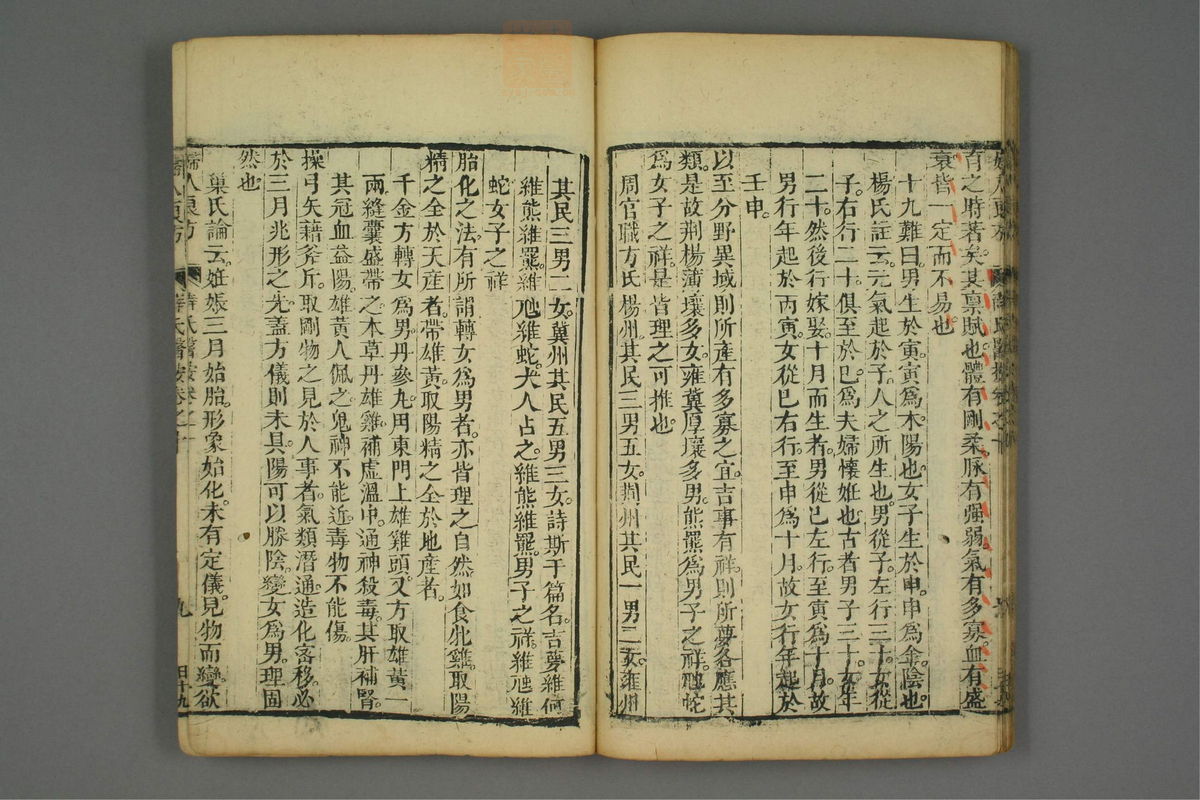 育之時著矣其稟賦也體有剛柔脉有强弱氣有多寡血有盛
衰皆一定而不易也
十九難曰男生於寅寅爲木陽也女子生於申申爲金陰也
楊氏註云元氣起於子人之所生也男從子左行三十女從
子右行二十俱至於巳爲夫婦懷姙也古者男子三十女年
二十然後行嫁娶十月而生者男從巳左行至寅爲十月故
男行年起於丙寅女從巳右行至申爲十月故女行年起於
壬申
以至分野異域則所產有多寡之宜吉事有祥則所夢各應其
類是故荆楊薄壤多女雍冀厚壤多男熊羆爲男子之祥虺蛇
爲女子之祥是皆理之可推也
周官職方氏楊州其民三男五女荆州其民一男二女雍州
其民三男二女冀州其民五男三女詩斯干篇名吉夢維何
維熊維羆維虺維蛇大人占之維熊維羆男子之祥維虺維
蛇女子之祥
胎化之法有所謂轉女爲男者亦皆理之自然如食牝雞取陽
精之全於天産者帶雄黄取陽精之全於地産者
千金方轉女爲男丹參丸用東門上雄雞頭又方取雄黄一
兩縫囊盛帶之本草丹雄雞補虛溫中通神殺毒其肝補腎
其冠血益陽雄黄人佩之鬼神不能近毒物不能傷
操弓矢藉斧斤取剛物之見於人事者氣類潛通造化密移必
於三月兆形之先蓋方儀則未具陽可以勝陰變女爲男理固
然也
巢氏論云姙娠三月始胎形象始化未有定儀見物而變欲
婦人良方
薛氏醫按卷之十
九
四十九